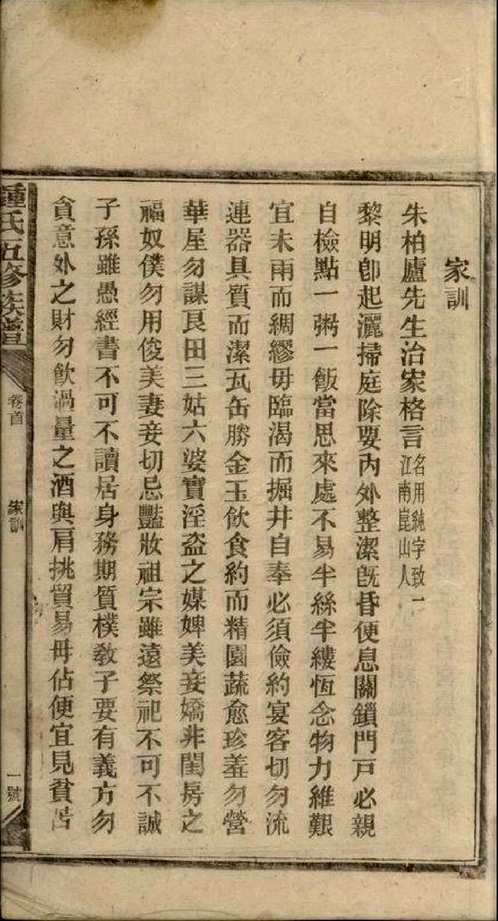 家訓
朱柏廬先生治家格言名用純字致一
江南崑山人
黎明卽起灑掃庭除要內外整潔旣昏便息關鎖門戶必親
自檢點一粥一飯當思來處不易半絲半縷恆念物力維艱
宜未雨而綢繆毋臨渴而掘井自奉必須儉約宴客切勿流
連器具質而潔瓦缶勝金玉飲食約而精園蔬愈珍羞勿營
華屋勿謀良田三姑六婆實淫盜之媒婢美妾嬌非閨房之
福奴僕勿用俊美妻妾切忌豔妝祖宗雖遠祭祀不可不誠
子孫雖愚經書不可不讀居身務期質樸敎子要有義方勿
貪意外之財勿飲過量之酒與肩挑貿易毋佔便宜見貧苦
鍾氏五修族譜
卷首
家訓
一號